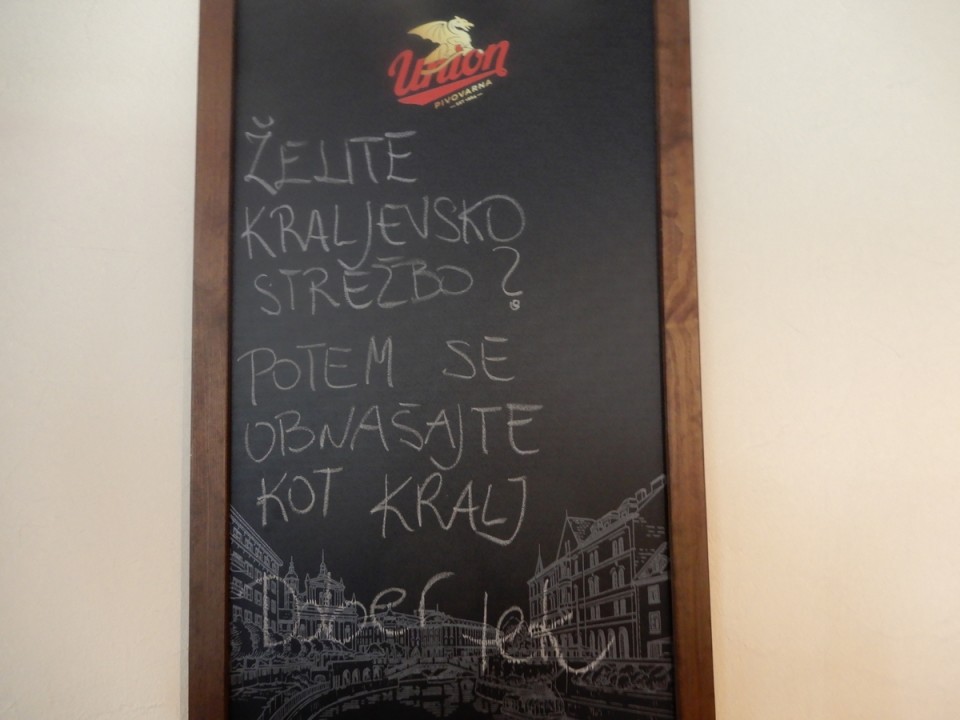 Union
PIVOVARNA
ŽELITE
KRALJEVSKO
STREŽBO?
POTEM SE
OBNAŠAJTE
KOT KRALJ